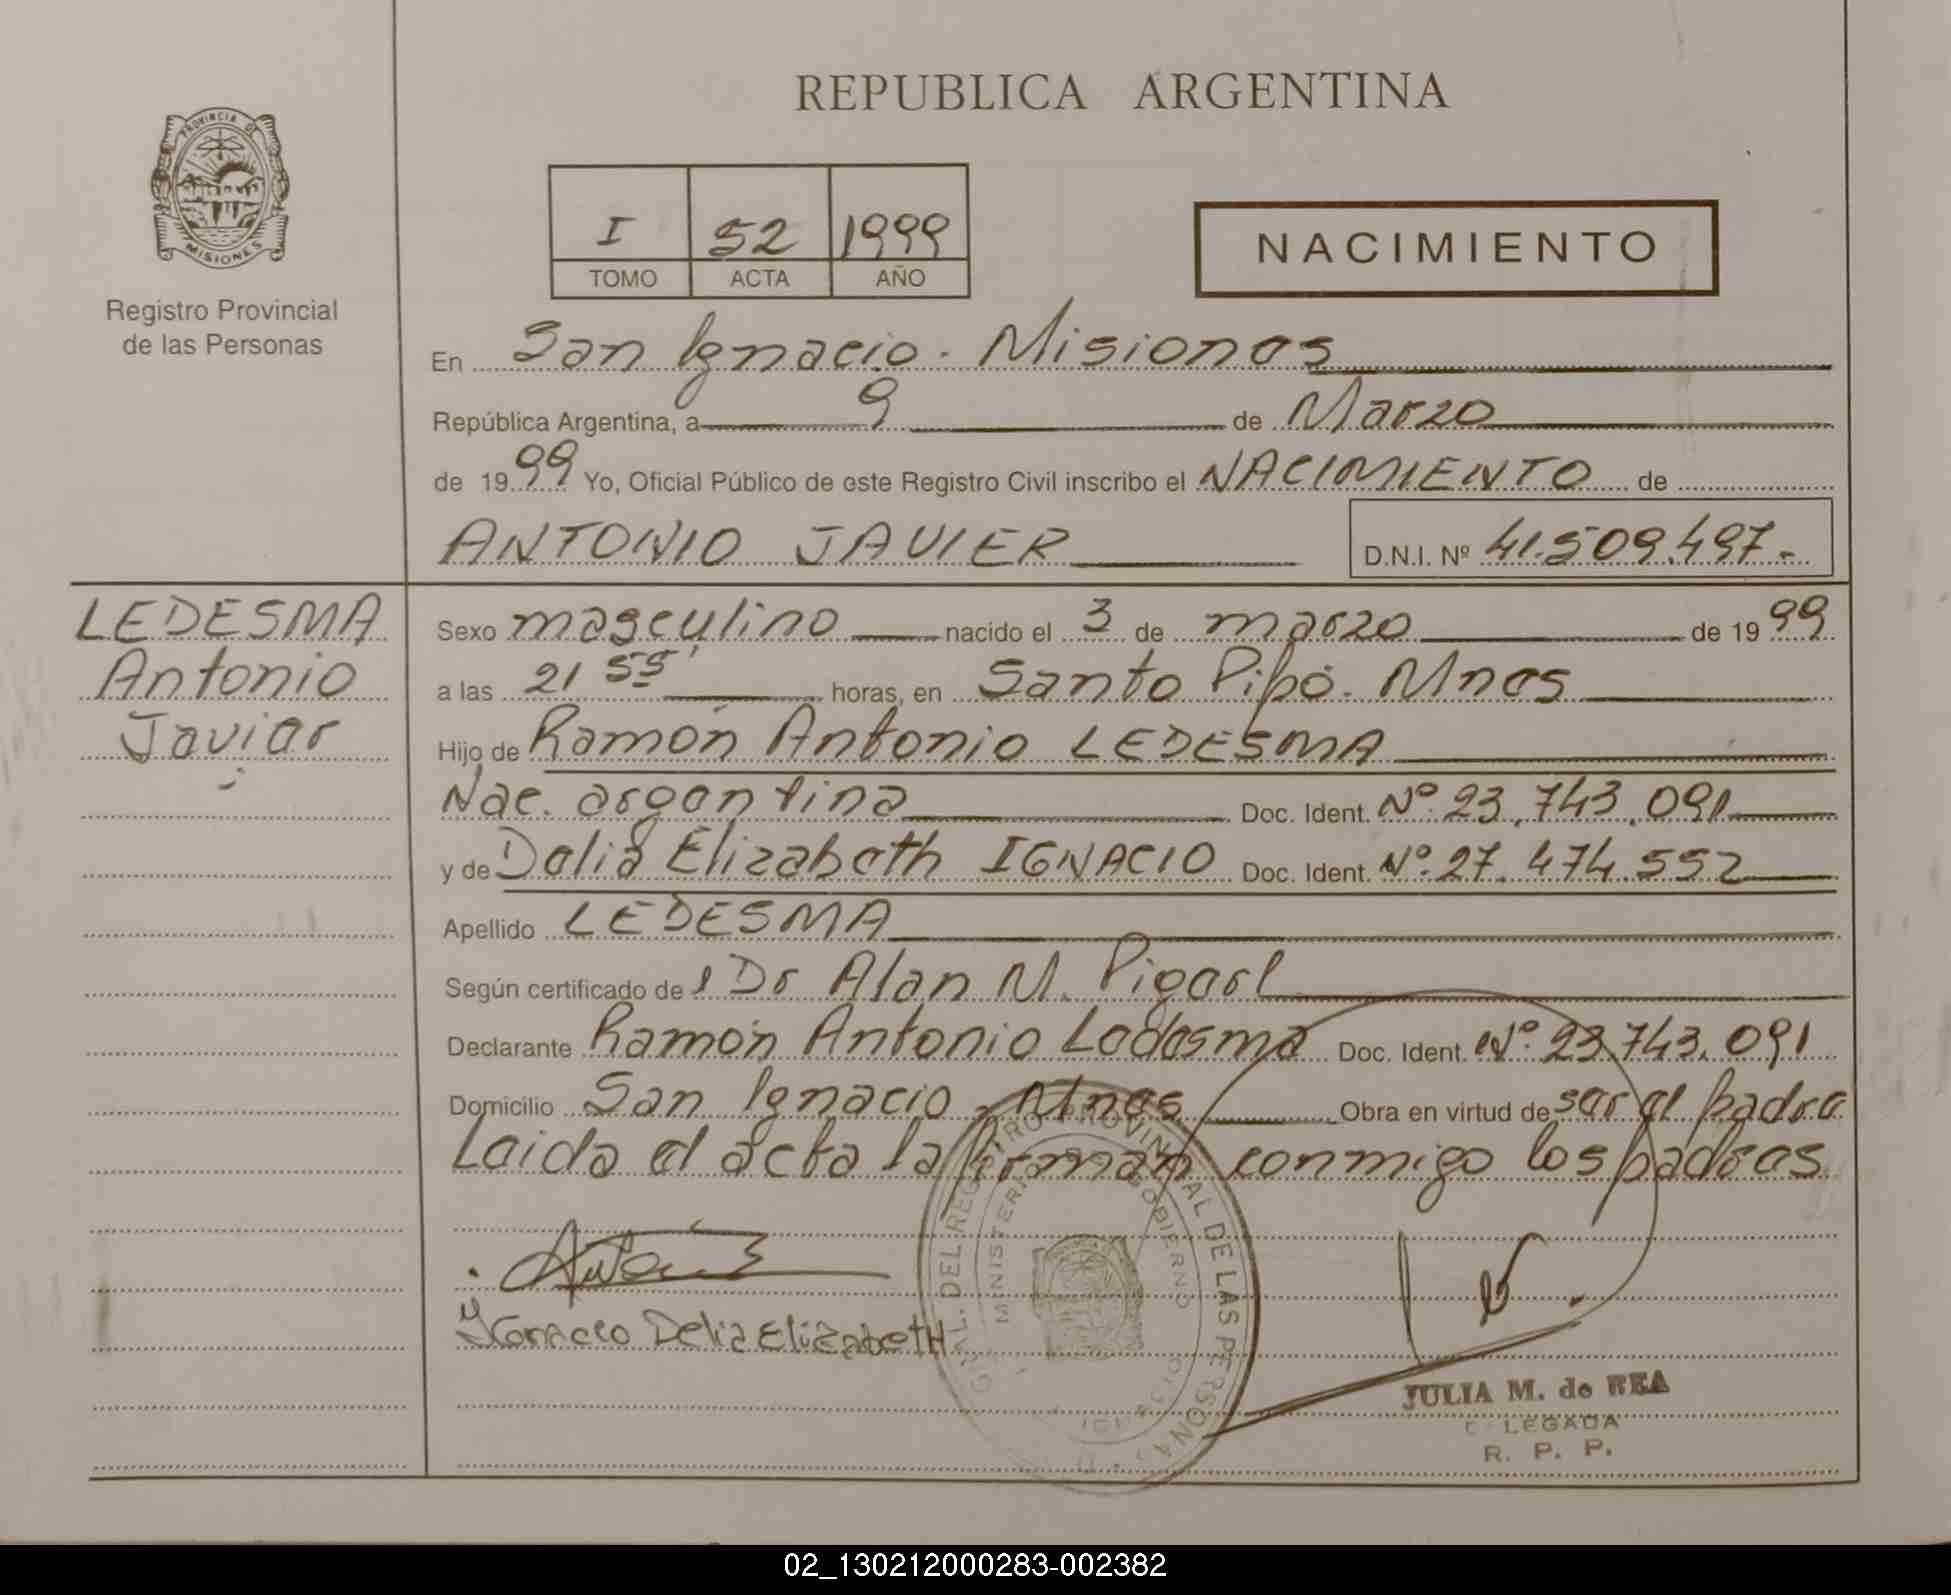 REPUBLICA ARGENTINA
PROVINCIA DE
MISIONES
Registro Provincial
de las Personas
I 52 1999
TOMO ACTA AÑO
NACIMIENTO
En San Ignacio - Misiones
República Argentina, a 9 de Marzo
de 1999 Yo, Oficial Público de este Registro Civil inscribo el NACIMIENTO de
ANTONIO JAVIER D.N.I. Nº 41.509.497.-
LEDESMA
Antonio
Javier
Sexo masculino nacido el 3 de marzo de 1999
a las 21 55' horas, en Santo Pipó - Mnes
Hijo de Ramón Antonio LEDESMA
Nac. argentina Doc. Ident. Nº 23.743.091
y de Delia Elizabeth IGNACIO Doc. Ident. Nº 27.474.552
Apellido LEDESMA
Según certificado de l Dr Alan M.
Declarante Ramón Antonio Ledesma Doc. Ident. Nº 23.743.091
Domicilio San Ignacio - Mnes Obra en virtud de ser el padre
Leida el acta la firman conmigo los padres
Ignacio Delia Elizabeth
GRAL. DEL REGISTRO PROVINCIAL DE LAS PERSONAS
MINISTERIO DE GOBIERNO
JULIA M. de REA
DELEGADA
R. P. P.
02_130212000283-002382